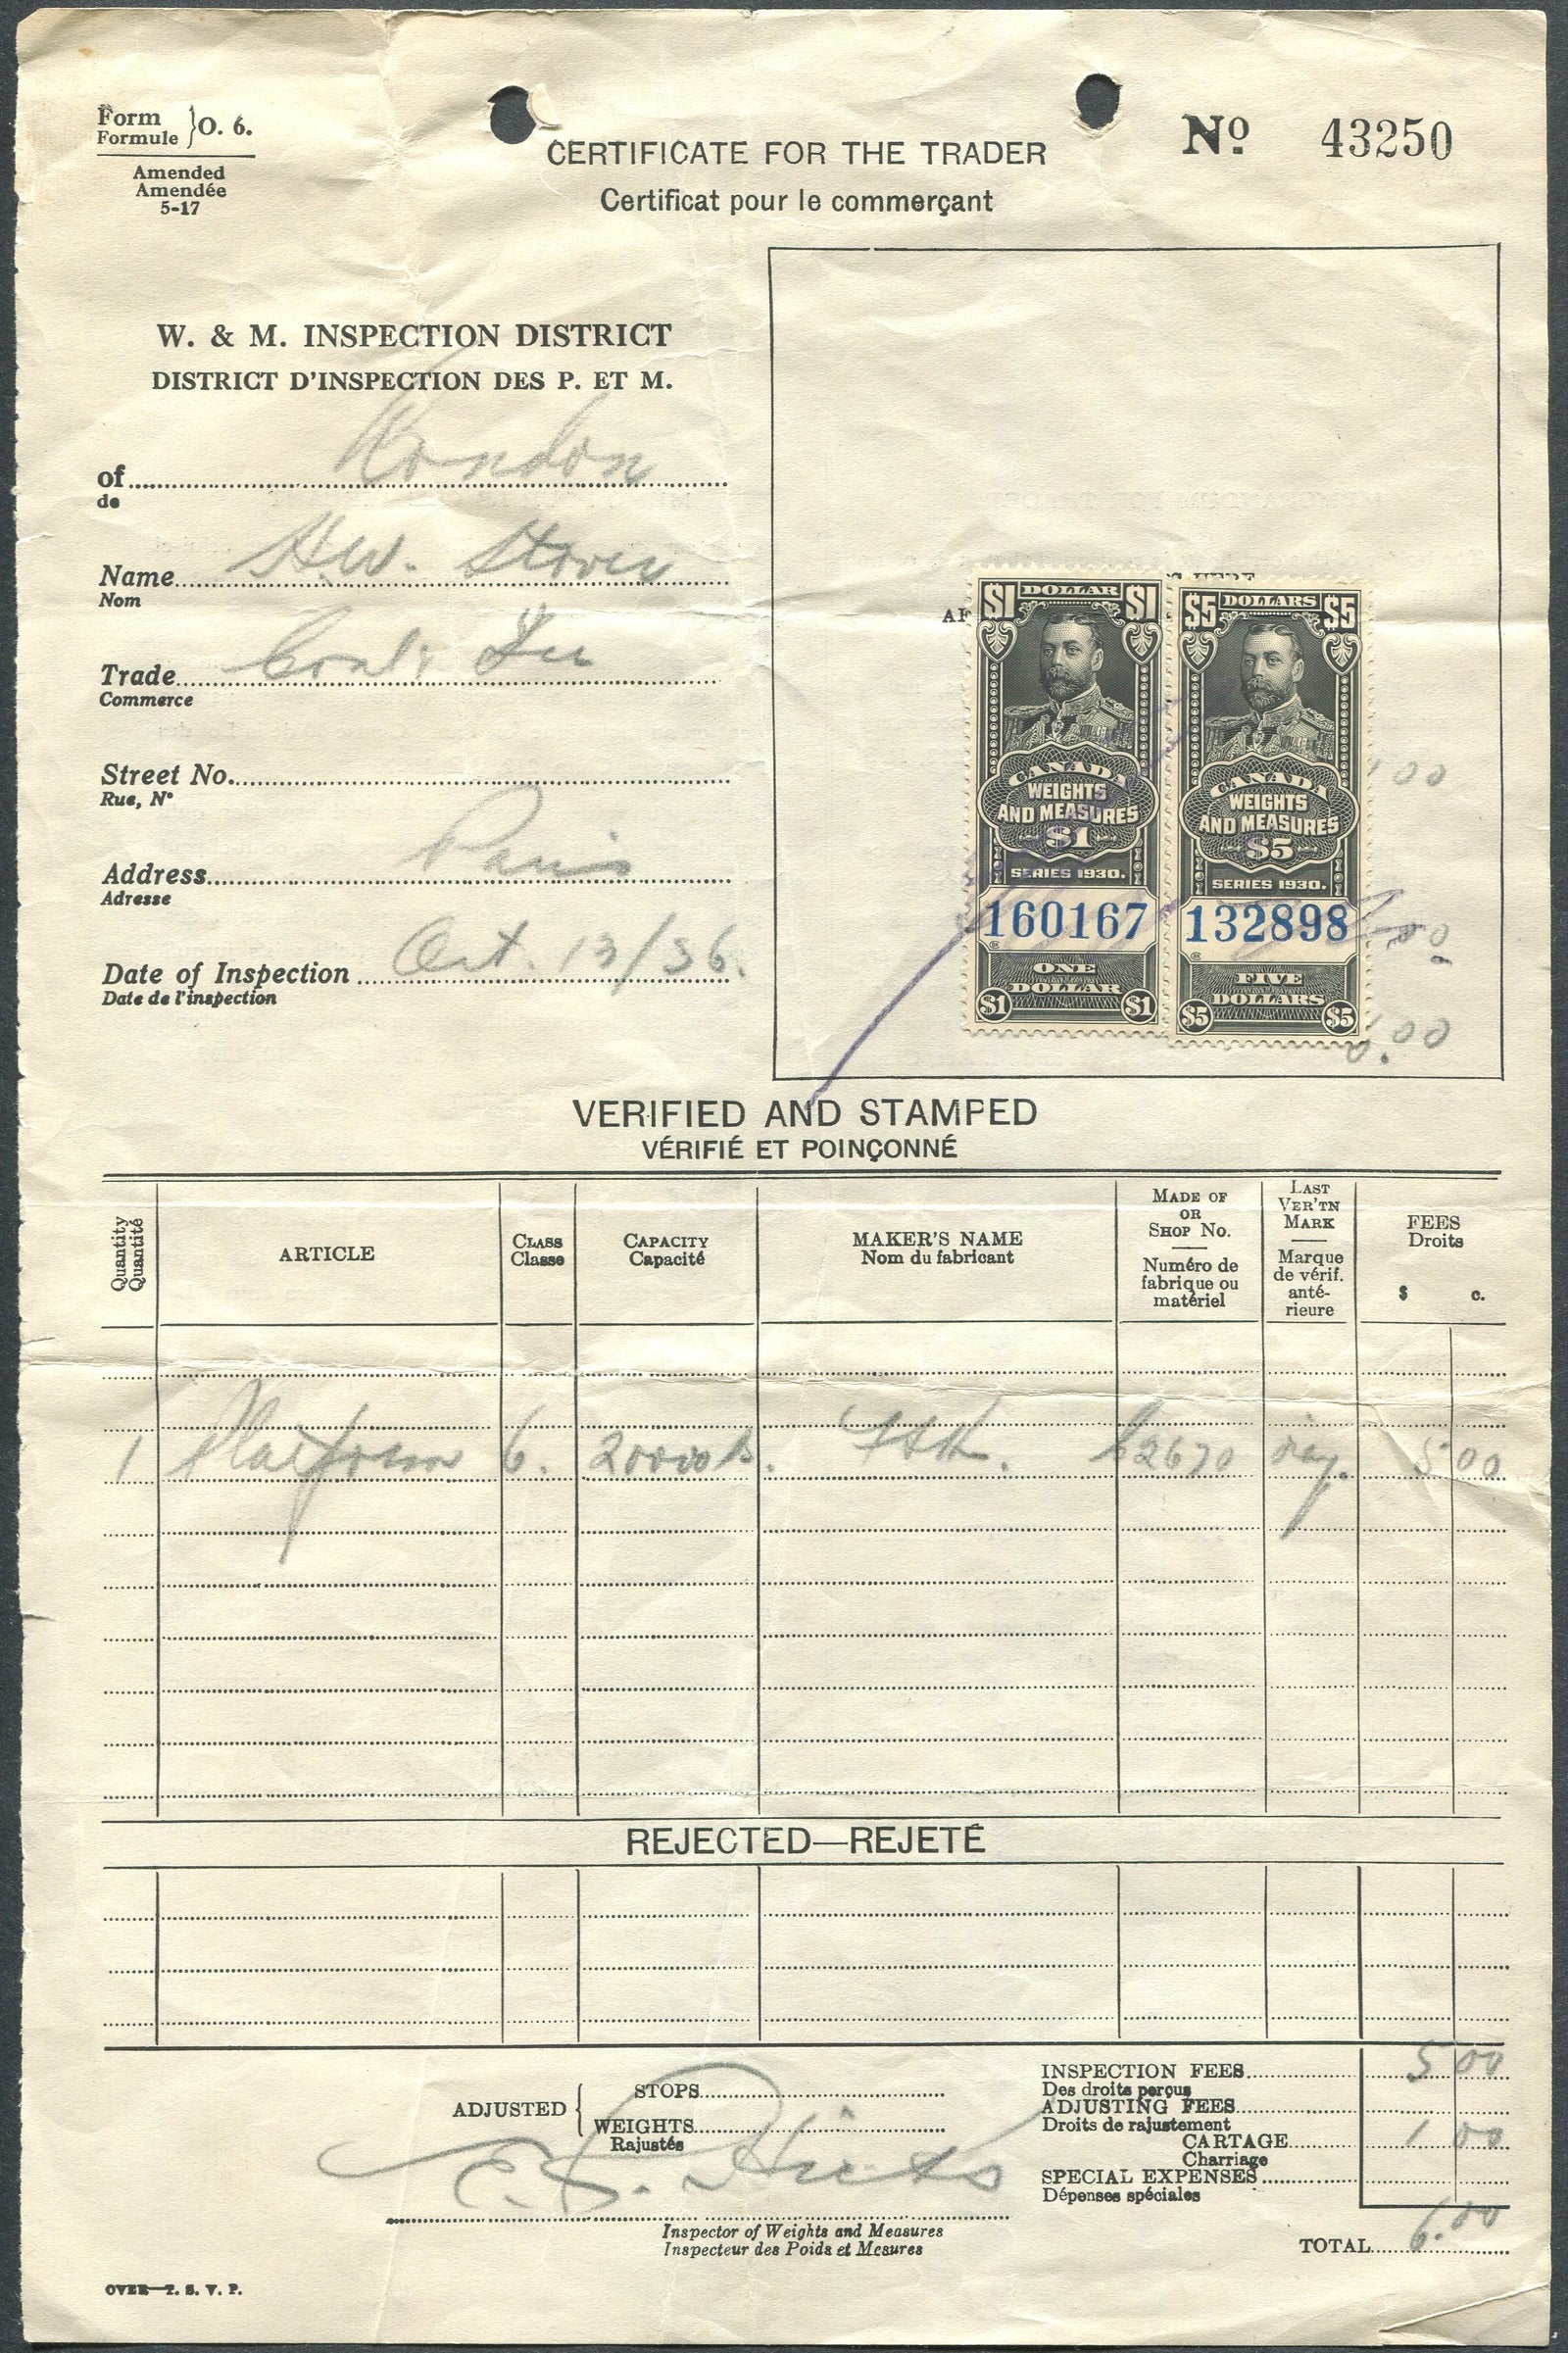 Form
Formule } O. 6.
Amended
Amendée
5-17
CERTIFICATE FOR THE TRADER
Certificat pour le commerçant
Nº 43250
W. & M. INSPECTION DISTRICT
DISTRICT D'INSPECTION DES P. ET M.
of London
de
Name H.W. Stover
Nom
Trade Coal
Commerce
Street No.
Rue, Nº
Address Paris
Adresse
Date of Inspection Oct. 13/36.
Date de l'inspection
HERE
AF
$1 DOLLAR $1
CANADA
WEIGHTS
AND MEASURES
$1
SERIES 1930.
160167
ONE
DOLLAR
$1 $1
$5 DOLLARS $5
CANADA
WEIGHTS
AND MEASURES
$5
SERIES 1930.
132898
FIVE
DOLLARS
$5 $5
VERIFIED AND STAMPED
VÉRIFIÉ ET POINÇONNÉ
Quantity
Quantité
ARTICLE
CLASS
Classe
CAPACITY
Capacité
MAKER'S NAME
Nom du fabricant
MADE OF
OR
SHOP No.
Numéro de
fabrique ou
matériel
LAST
VER'TN
MARK
Marque
de vérif.
anté-
rieure
FEES
Droits
$ c.
1 Platform 6. 2670 5 00
REJECTED—REJETÉ
ADJUSTED { STOPS
WEIGHTS
Rajustés
INSPECTION FEES 5 00
Des droits perçus
ADJUSTING FEES
Droits de rajustement
CARTAGE 1 00
Charriage
SPECIAL EXPENSES
Dépenses spéciales
TOTAL 6.00
Inspector of Weights and Measures
Inspecteur des Poids et Mesures
OVER—T. S. V. P.